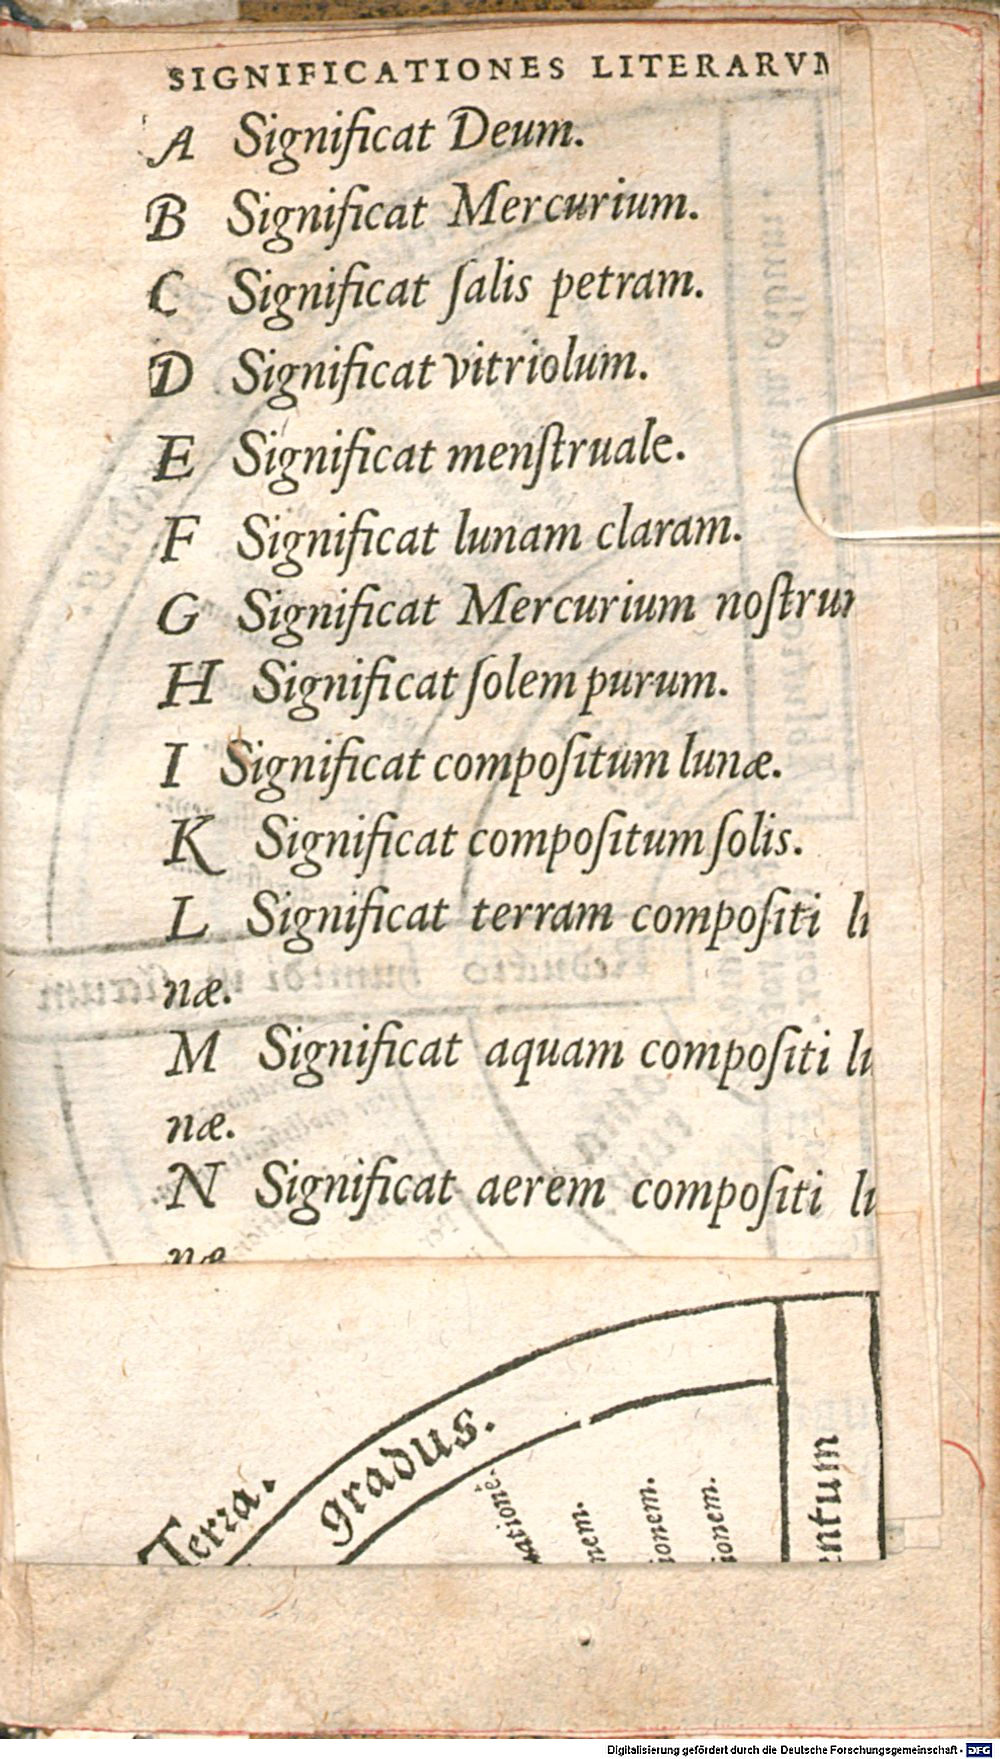 SIGNIFICATIONES LITERARVM
A Significat Deum.
B Significat Mercurium.
C Significat ſalis petram.
D Significat vitriolum.
E Significat menſtruale.
F Significat lunam claram.
G Significat Mercurium noſtrum
H Significat ſolem purum.
I Significat compoſitum lunæ.
K Significat compoſitum ſolis.
L Significat terram compoſiti lu
næ.
M Significat aquam compoſiti lu
næ.
N Significat aerem compoſiti lu
næ
Terra.
gradus.
Digitalisierung gefördert durch die Deutsche Forschungsgemeinschaft - DFG